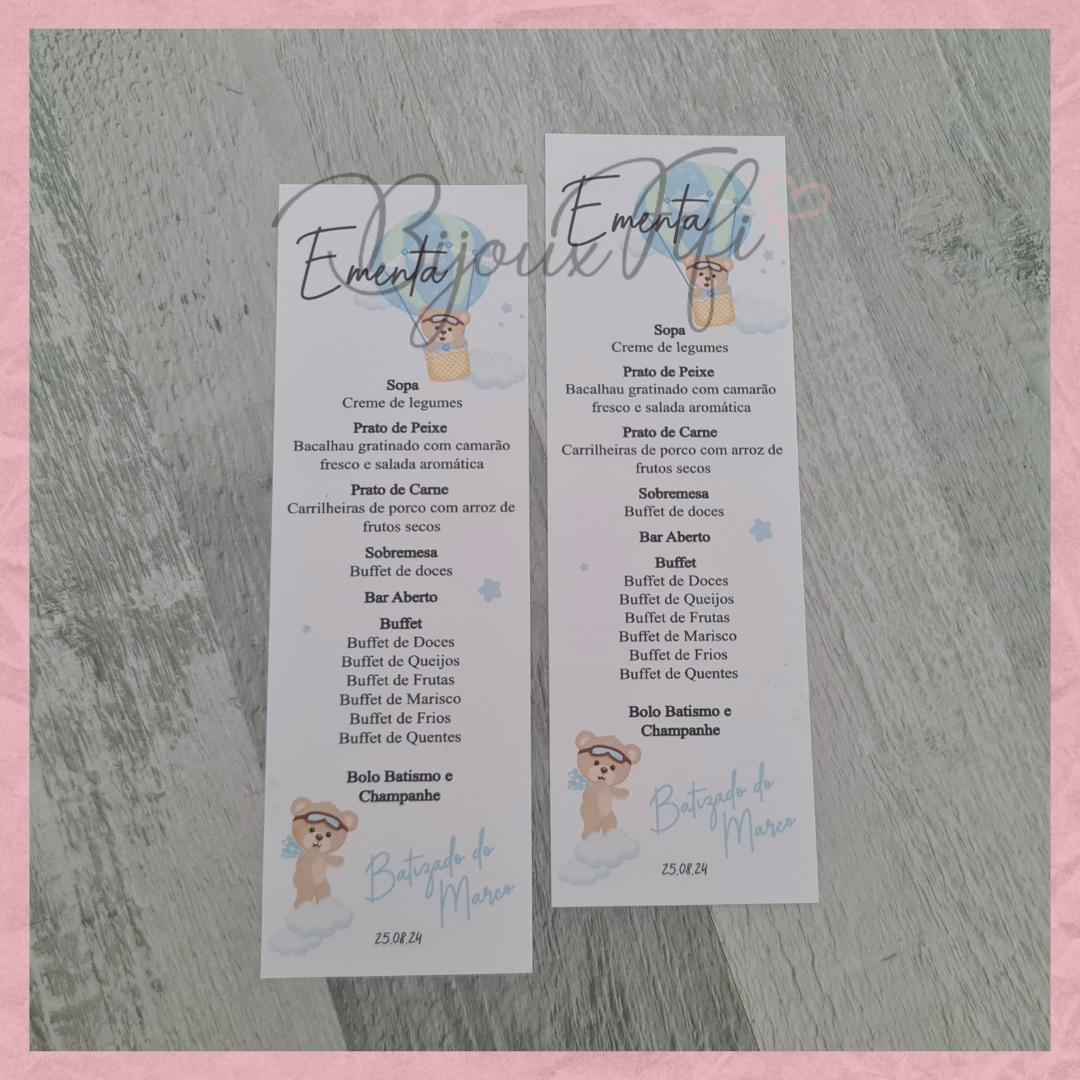 BijouxVili
Ementa
Sopa
Creme de legumes
Prato de Peixe
Bacalhau gratinado com camarão
fresco e salada aromática
Prato de Carne
Carrilheiras de porco com arroz de
frutos secos
Sobremesa
Buffet de doces
Bar Aberto
Buffet
Buffet de Doces
Buffet de Queijos
Buffet de Frutas
Buffet de Marisco
Buffet de Frios
Buffet de Quentes
Bolo Batismo e
Champanhe
Batizado do
Marco
25.08.24
Ementa
Sopa
Creme de legumes
Prato de Peixe
Bacalhau gratinado com camarão
fresco e salada aromática
Prato de Carne
Carrilheiras de porco com arroz de
frutos secos
Sobremesa
Buffet de doces
Bar Aberto
Buffet
Buffet de Doces
Buffet de Queijos
Buffet de Frutas
Buffet de Marisco
Buffet de Frios
Buffet de Quentes
Bolo Batismo e
Champanhe
Batizado do
Marco
25.08.24